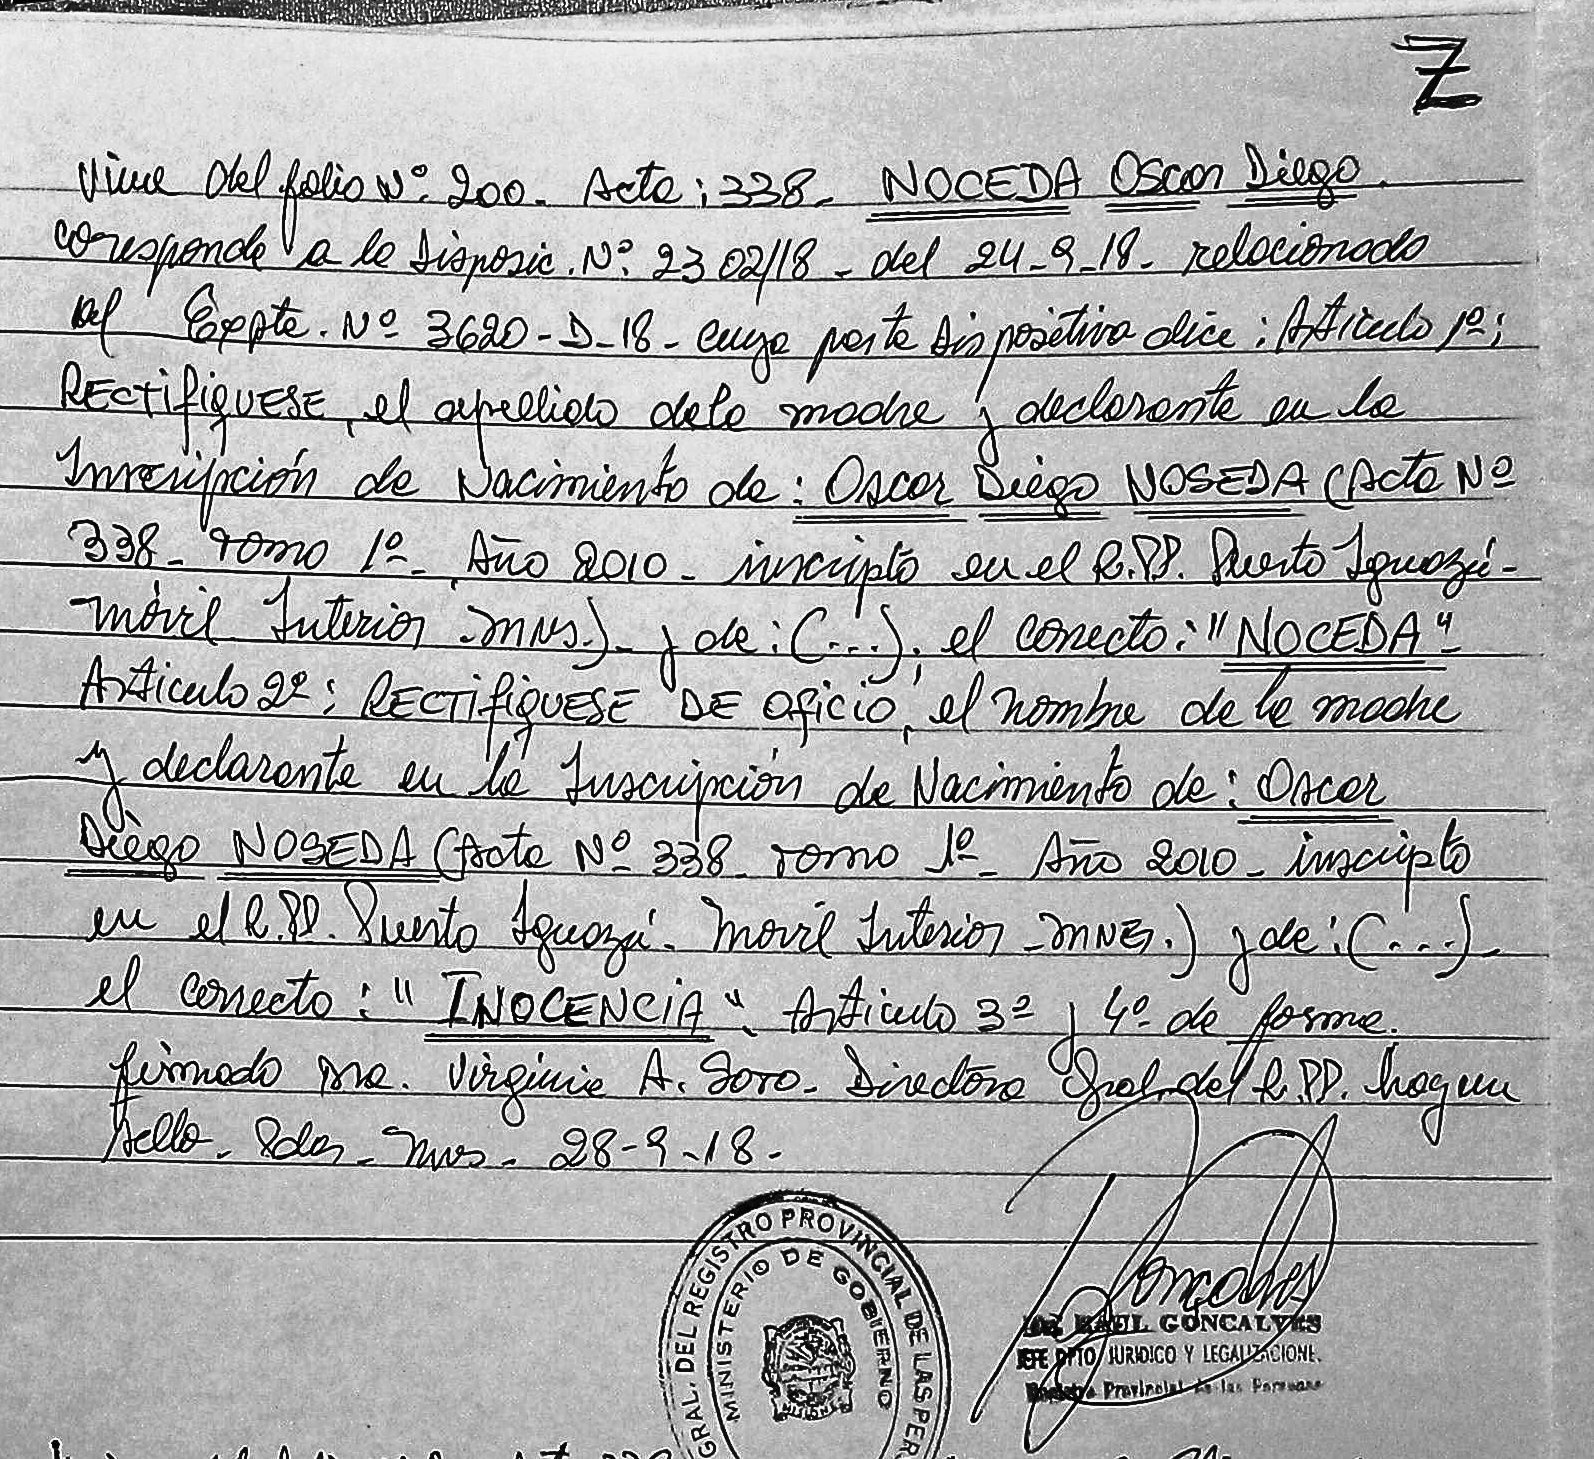 Z
Viene del folio Nº. 200. Acta: 338. NOCEDA Oscar Diego.
corresponde a la Disposic. Nº. 2302/18 - del 24-9-18- relacionado
al Expte. Nº 3620-D-18- cuya parte dispositiva dice: Artículo 1º:
RECTIFIQUESE, el apellido de la madre y declarante en la
Inscripción de Nacimiento de: Oscar Diego NOSEDA (Acta Nº
338- Tomo 1º- Año 2010- inscripto en el R.PP. Puerto Iguazú-
Móvil Interior -MNES.)- y de: (...), el correcto: "NOCEDA"-
Artículo 2º: RECTIFIQUESE DE OFICIO, el nombre de la madre
y declarante en la Inscripción de Nacimiento de: Oscar
Diego NOSEDA (Acta Nº 338- Tomo 1º- Año 2010- inscripto
en el R.PP. Puerto Iguazú- Movil Interior -MNES.) y de: (....)-
el correcto: "INOCENCIA". Artículo 3º y 4º- de forma.
firmado Dra. Virginia A. Soro- Directora Gral. del R.PP. hay un
sello- Pdas- Mnes- 28-9-18-
GRAL. DEL REGISTRO PROVINCIAL DE LAS PER
MINISTERIO DE GOBIERNO
MISIONES
Goncalves
RAUL GONCALVES
JEFE DPTO JURIDICO Y LEGALIZACIONE.
Registro Provincial de las Personas